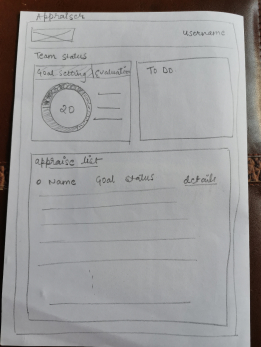 Appraiser
Username
Team status
Goal setting / Evaluation
To Do
20
appraise list
Name Goal status details